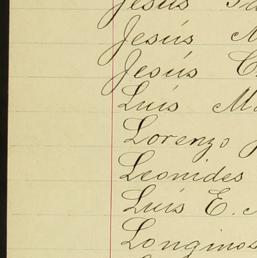 Jesús
Jesús
Jesús
Luís
Lorenzo
Leonides
Luís E.
Longinos